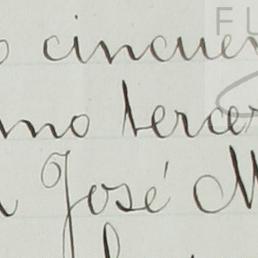 cincuen
mo tercer
José M